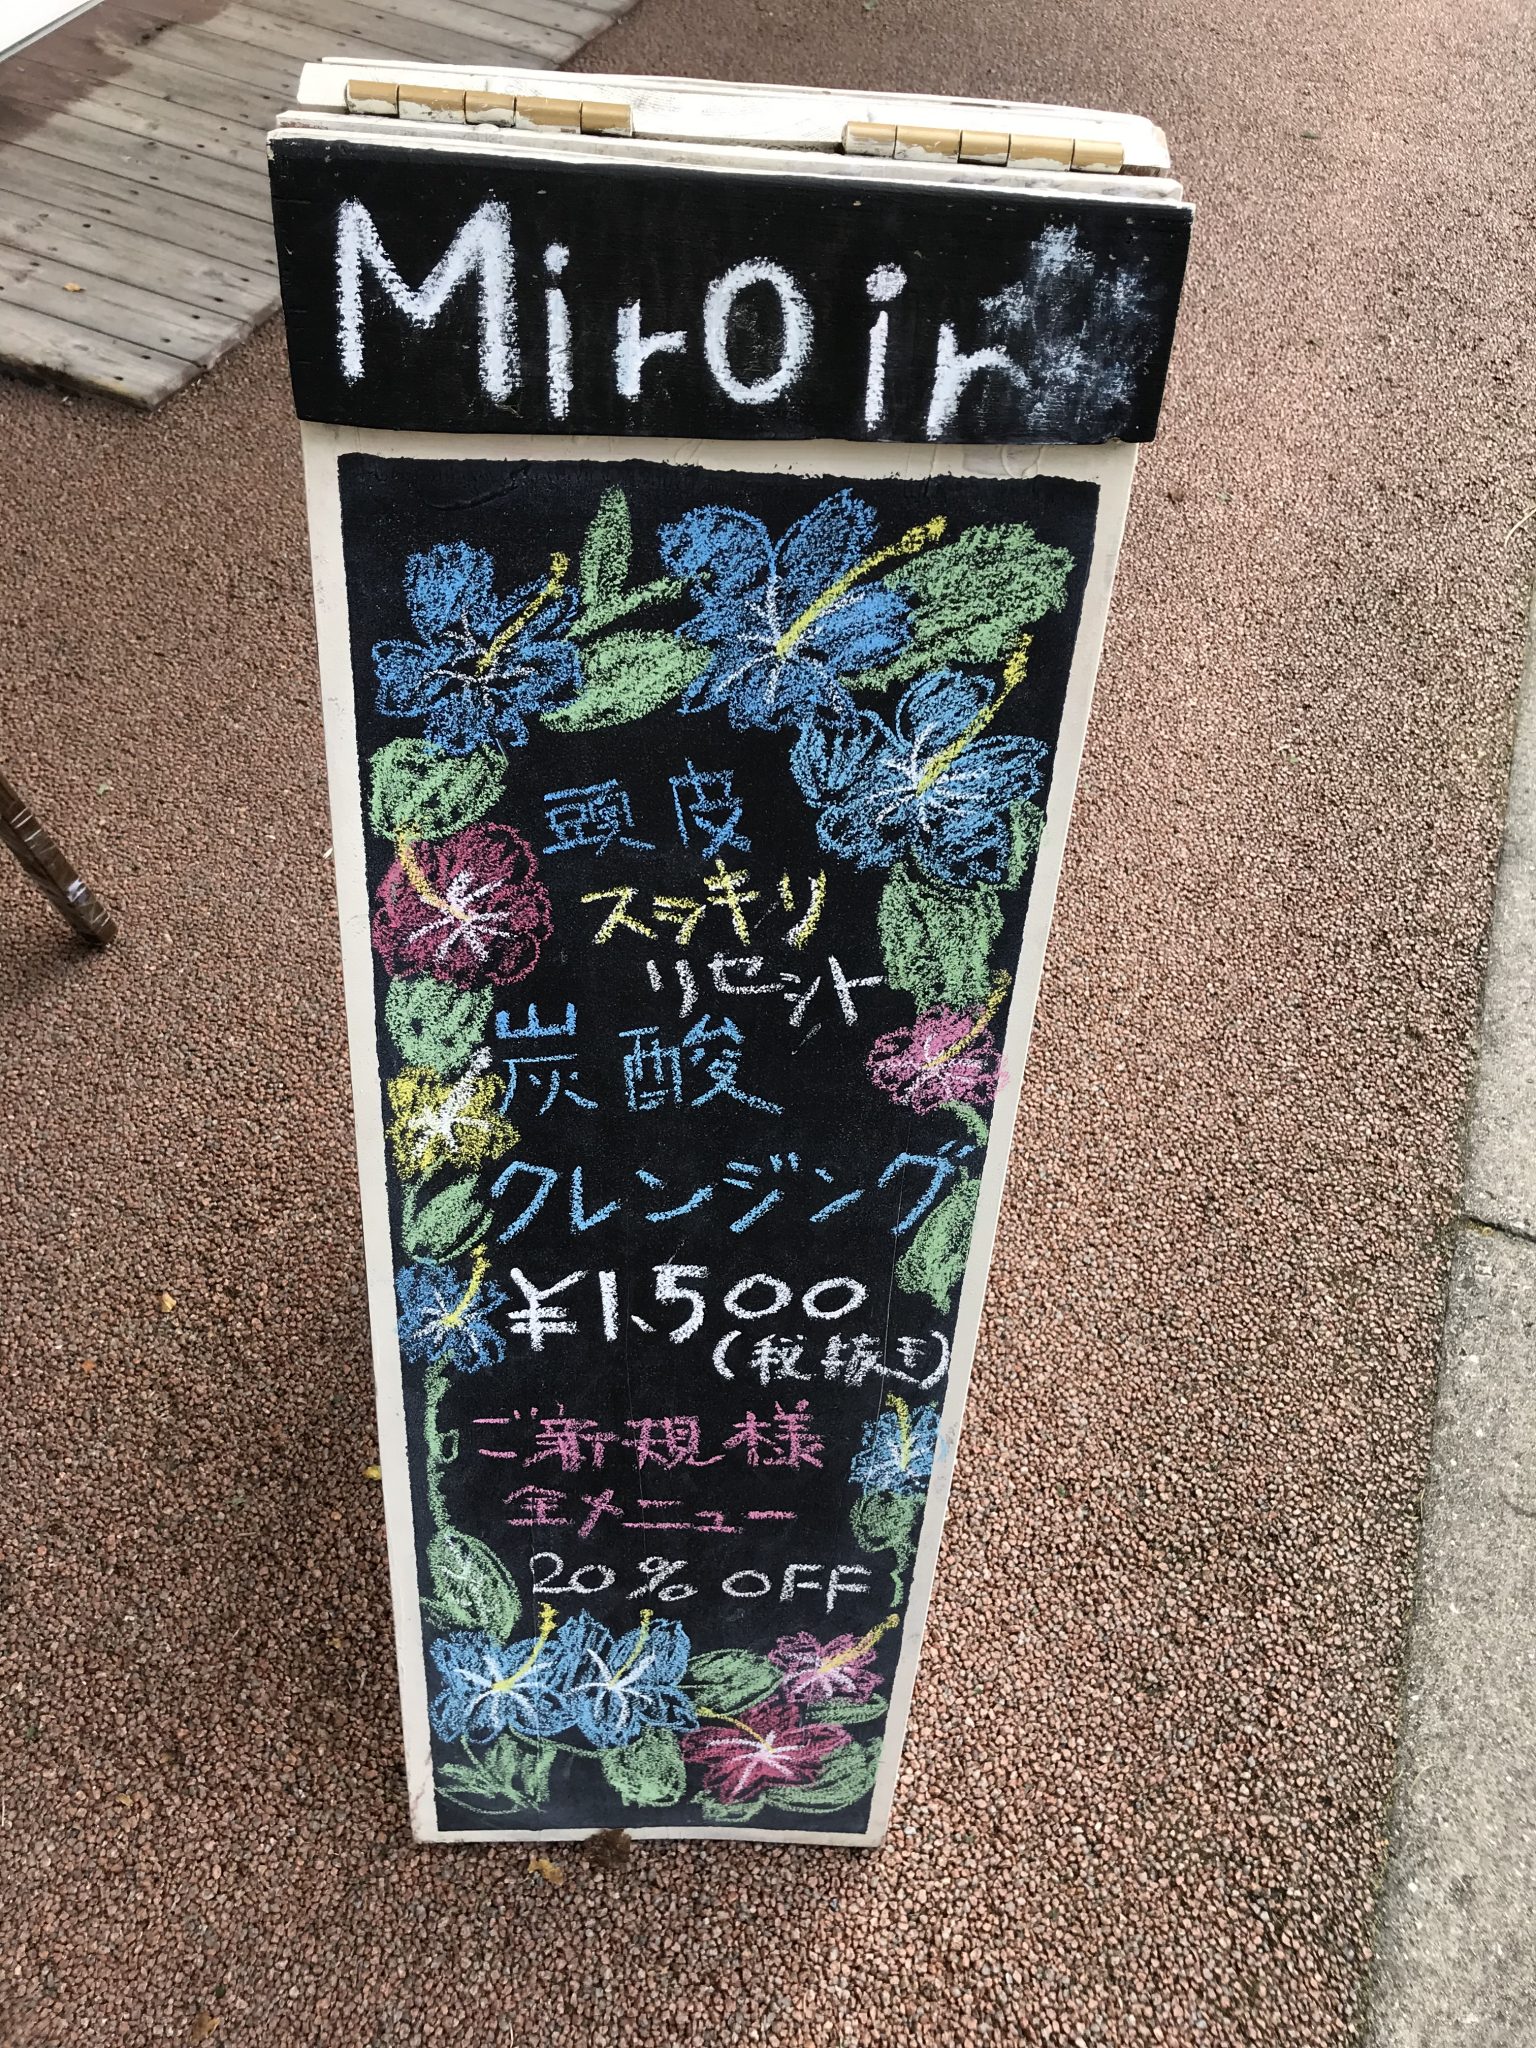 Miroir
頭皮
スッキリ
リセット
炭酸
クレンジング
¥1,500
(税抜き)
ご新規様
全メニュー
20% OFF